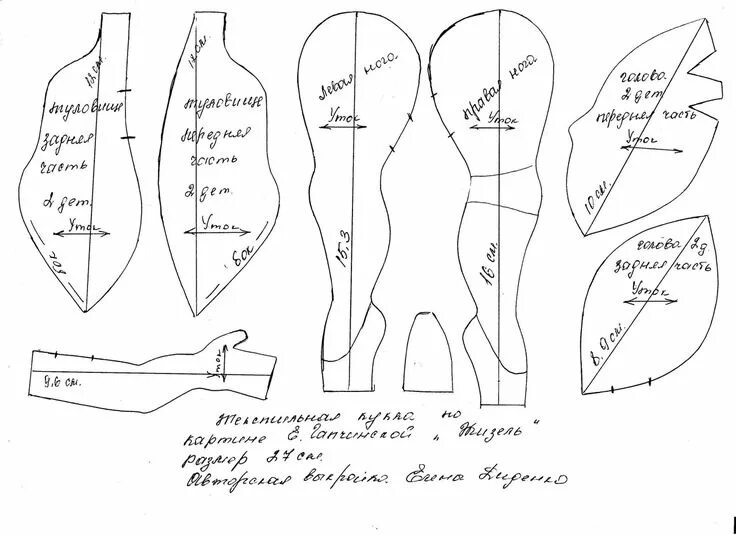 12 см.
туловище
задняя
часть
2 дет.
Уток
бок
12 см.
туловище
передняя
часть
2 дет.
Уток
бок
Левая нога
Уток
15,3
правая нога
Уток
16 см.
голова
2 дет
передняя часть
Уток
10 см.
голова 2д
задняя часть
Уток
8,9 см.
9,6 см.
Уток
Текстильная кукла по
картине Е. Гапчинской „Жизель"
размер 27 см.
Авторская выкройка. Елена Диденко